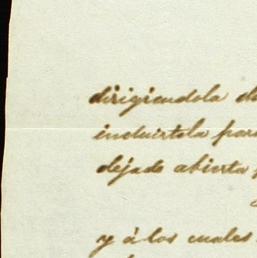 dirigiendola
incluirtela para
dejado abierta
y á los cuales